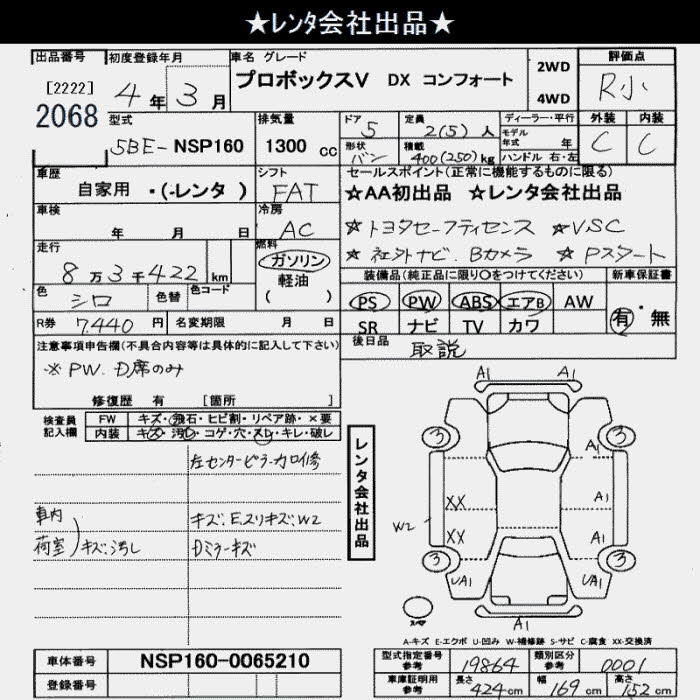 ★レンタ会社出品★
出品番号 初度登録年月 車名 グレード 評価点
[2222]
2068
4年 3月
プロボックスV DX コンフォート
2WD
4WD
R小
型式 排気量 ドア 定員 ディーラー・平行 外装 内装
5BE-NSP160 1300cc 5 2(5)人
モデル年式 年
C C
形状 バン 積載 400(250)kg ハンドル 右・左
車歴 シフト セールスポイント(正常に機能するものに限る)
自家用 ・(-レンタ ) FAT
☆AA初出品 ☆レンタ会社出品
車検 冷房
年 月 日 AC
☆トヨタセーフティセンス ☆VSC
☆社外ナビ.Bカメラ ☆Pスタート
走行 燃料
8万3千422km
ガソリン
軽油
( )
装備品(純正品に限り○をつけてください) 新車保証書
色 シロ 色替 色コード
PS PW ABS エアB AW
有・無
SR ナビ TV カワ
R券 7.440円 名変期限 月 日
後日品 取説
注意事項申告欄(不具合内容等は具体的に記入して下さい)
※PW.D席のみ
修復歴 有 [箇所 ]
検査員記入欄
FW キズ・飛石・ヒビ割・リペア跡・×要
内装 キズ・汚れ・コゲ・穴・スレ・キレ・破レ
左センターピラーカロ修
車内
荷室)キズ:汚し
キズ:Eスリキズ:W2
Dミラーキズ
レンタ会社出品
A1 A1
3 3
A1
XX A1
W2
XX A1
3 3
UA1 UA1
スペア
A1
A-キズ E-エクボ U-凹み W-補修跡 S-サビ C-腐食 XX-交換済
車体番号 NSP160-0065210
登録番号
型式指定番号参考 19864 類別区分参考 0001
車庫証明用参考 長さ 424cm 幅 169cm 高さ 152cm